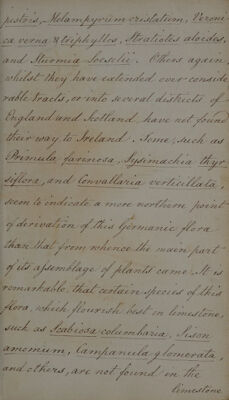 pestris, Melampyrum cristatum, Veroni
ca verna & triphyllos, Stratiotes aloides,
and Sturmia Loeselii. Others again
whilst they have extended over conside
rable tracts, or into several districts of
England and Scotland have not found
their way to Ireland. Some, such as
Primula farinosa, Lysimachia thyr
siflora, and Convallaria verticillata,
seem to indicate a more northern point
of derivation of this Germanic flora
than that from whence the main part
of its assemblage of plants came. It is
remarkable that certain species of this
flora, which flourish best in limestone,
such as Scabiosa columbaria, Sison
amomum, Campanula glomerata,
and others, are not found in the
limestone